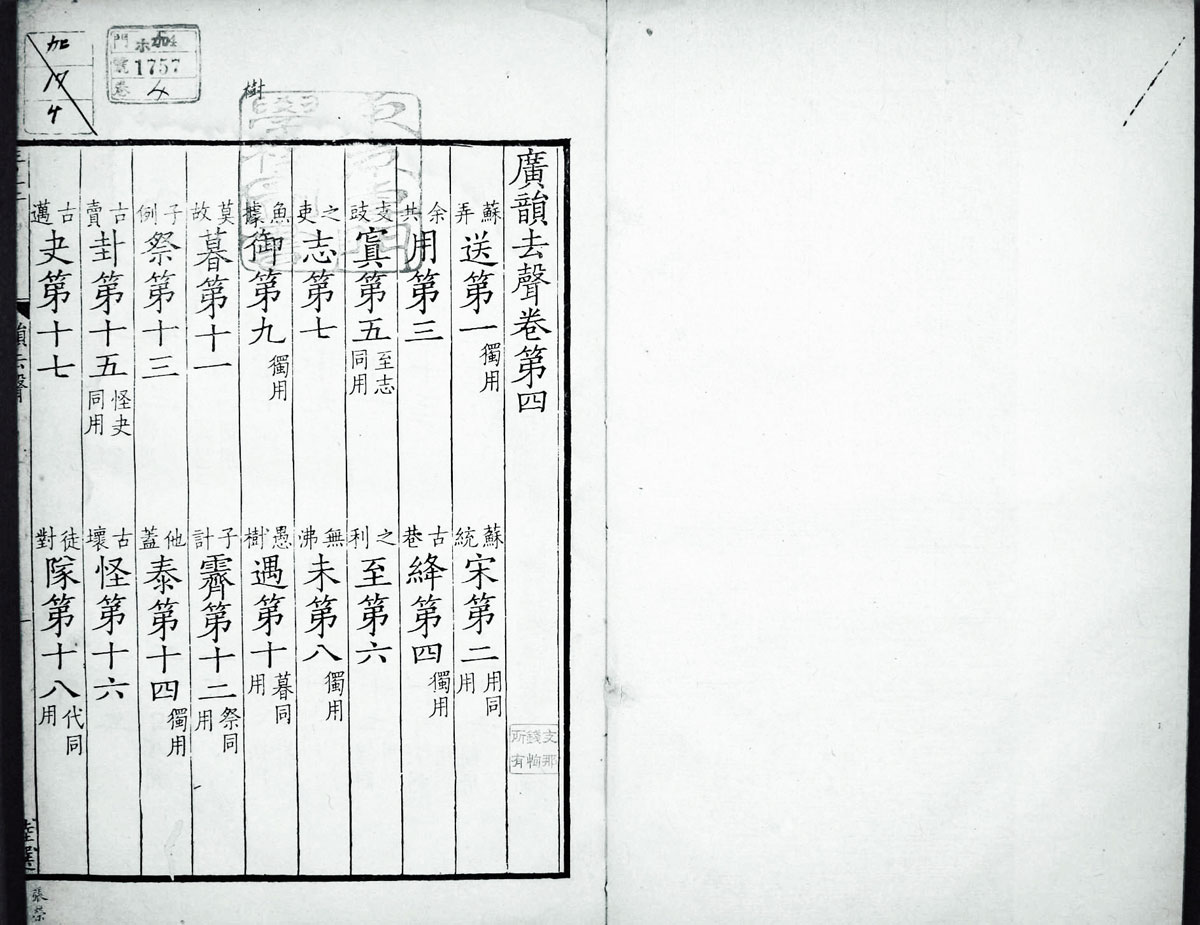 廣韻去聲卷第四
蘇弄送第一獨用
蘇統宋第二用同用
余共用第三
古巷絳第四獨用
支豉寘第五至志同用
之利至第六
之吏志第七
無沸未第八獨用
魚據御第九獨用
愚樹遇第十暮同用
莫故暮第十一
子計霽第十二祭同用
子例祭第十三
他蓋泰第十四獨用
古賣卦第十五怪夬同用
古壞怪第十六
古邁夬第十七
徒對隊第十八代同用
韻去聲
一
樹
支那錢恂所有
門
號 1757
卷